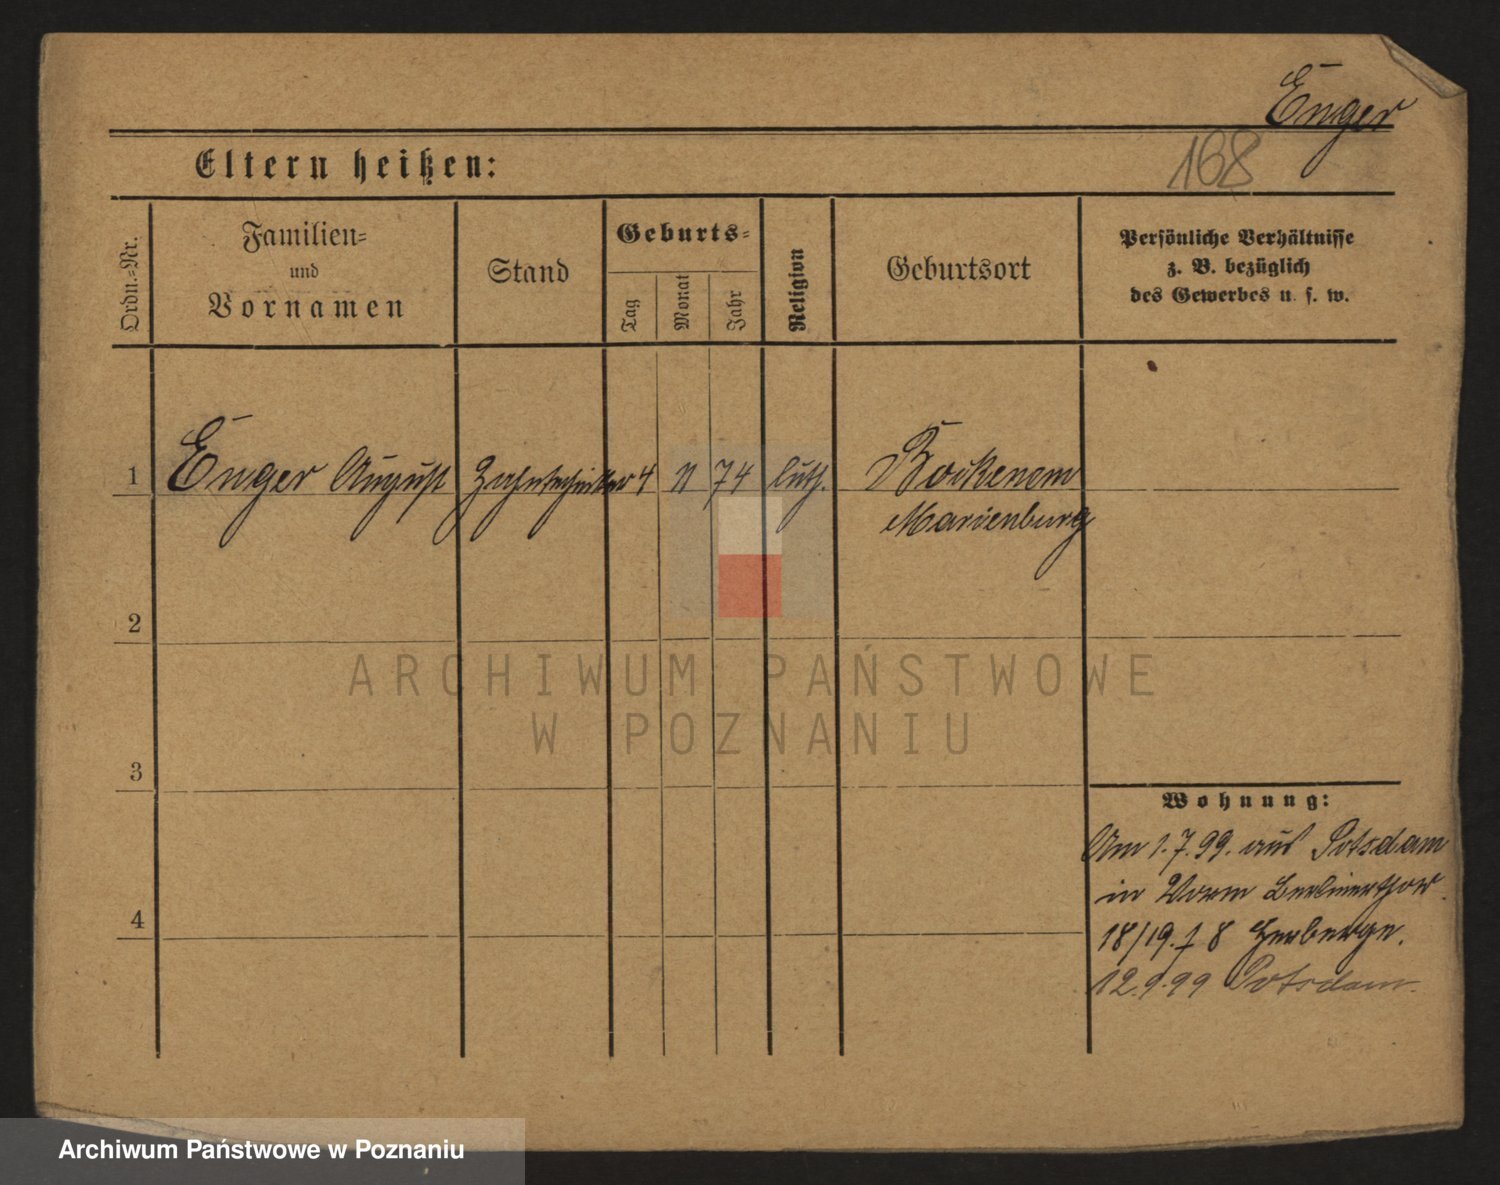 Enger
168
Eltern heißen:
Ordn.-Nr.
Familien-
und
Vornamen
Stand
Geburts-
Tag
Monat
Jahr
Religion
Geburtsort
Persönliche Verhältnisse
z. B. bezüglich
des Gewerbes u. s. w.
1 Enger August Zahntechniker 4 11 74 luth. Bockenem
Marienburg
2
3
4
Wohnung:
Am 1.7.99. aus Potsdam
in Berlinerthor
18/19. 8 Herberge.
12.9.99 Potsdam.
ARCHIWUM PAŃSTWOWE
W POZNANIU
Archiwum Państwowe w Poznaniu